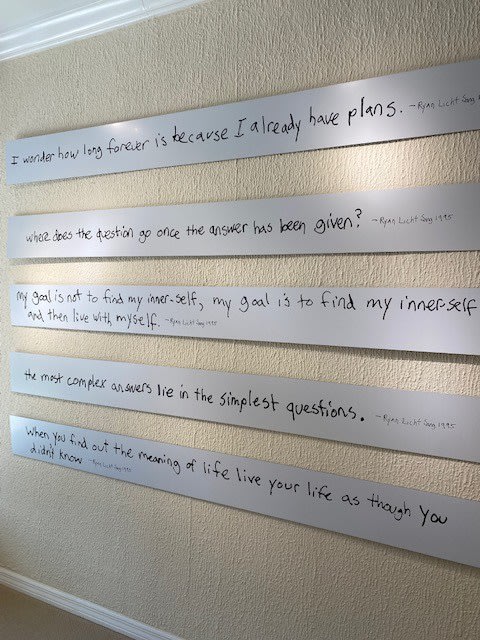 I wonder how long forever is because I already have plans. -Ryan Licht Sang
where does the question go once the answer has been given? -Ryan Licht Sang 1995
my goal is not to find my inner-self, my goal is to find my inner-self
and then live with myself. -Ryan Licht Sang 1995
the most complex answers lie in the simplest questions. -Ryan Licht Sang 1995
When you find out the meaning of life live your life as though you
didn't know -Ryan Licht Sang 1995